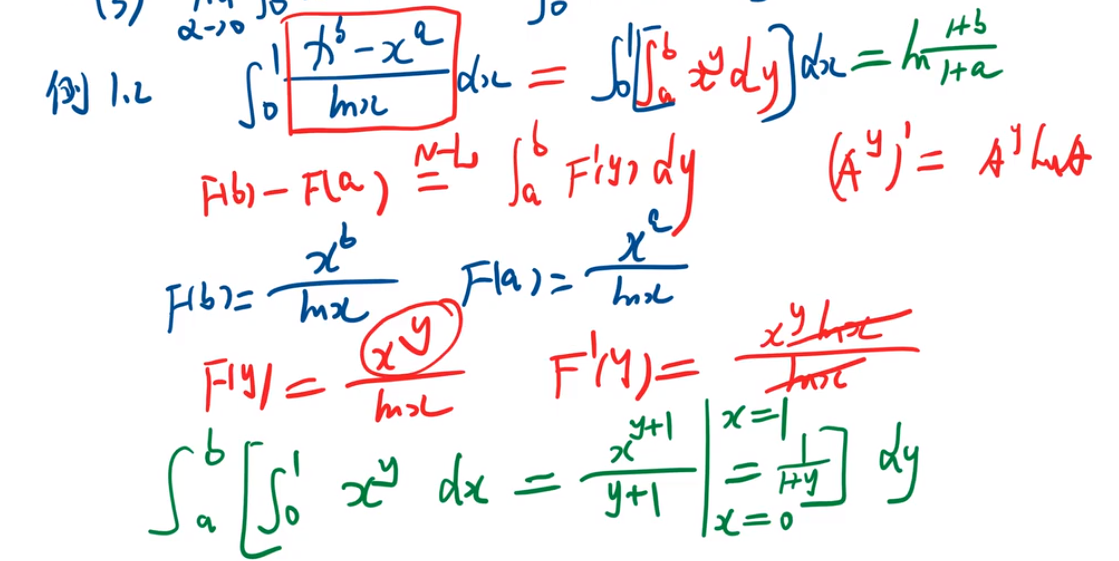 (3) lim α→0 ∫0
∫0
例 1.2 ∫_0^1 (x^b - x^a)/(ln x) dx = ∫_0^1 [∫_a^b x^y dy] dx = ln (1+b)/(1+a)
F(b) - F(a) =^{N-L} ∫_a^b F'(y) dy (A^y)' = A^y ln A
F(b) = x^b/(ln x) F(a) = x^a/(ln x)
F(y) = x^y/(ln x) F'(y) = (x^y ln x)/(ln x)
∫_a^b [∫_0^1 x^y dx = x^{y+1}/(y+1) |_{x=0}^{x=1} = 1/(1+y)] dy